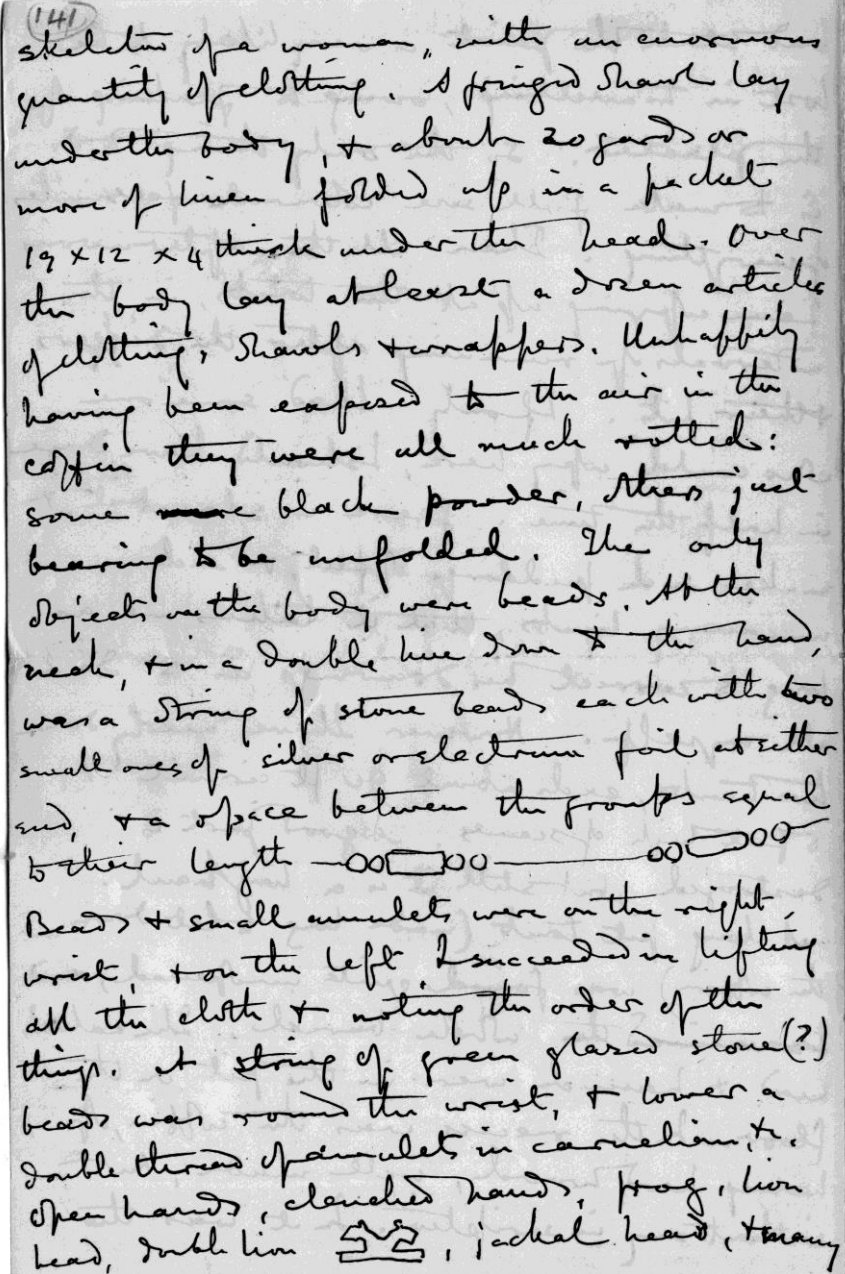 141
skeleton of a woman, with an enormous
quantity of clothing. A fringed shawl lay
under the body, & about 20 yards or
more of linen folded up in a packet
19 x 12 x 4 thick under the head. Over
the body lay at least a dozen articles
of clothing, shawls & wrappers. Unhappily
having been exposed to the air in the
coffin they were all much rotted:
some mere black powder, others just
bearing to be unfolded. The only
objects on the body were beads. At the
neck, & in a double line down to the hand,
was a string of stone beads each with two
small ones of silver or electrum foil at either
end, & a space between the groups equal
to their length
Beads & small amulets were on the right
wrist, & on the left I succeeded in lifting
all the cloth & noting the order of the
things. A string of green glazed stone (?)
beads was round the wrist, & lower a
double thread of amulets in carnelian, &c.
open hands, clenched hands, frog, lion
head, double lion , jackal head, & many